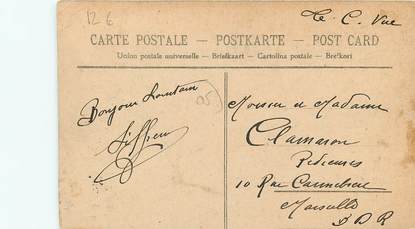 12 €
Le C. Vue
CARTE POSTALE – POSTKARTE – POST CARD
Union postale universelle – Briefkaart – Cartolina postale – Bre'kori
Bonjour Lointain
05
Monsieur et Madame
Clamaron
Pédicures
10 Rue Cannebière
Marseille
B D R